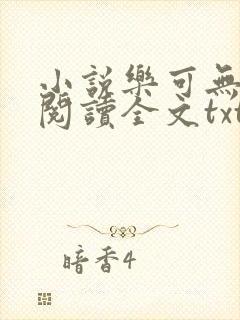 小説樂可無
閱讀全文txt
暗香4